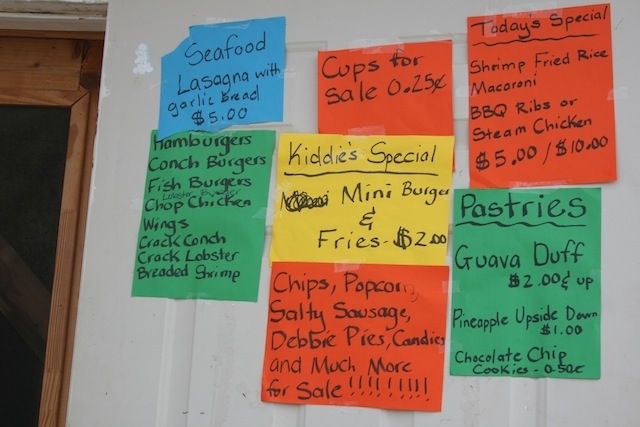 Seafood
Lasagna with
garlic bread
$5.00
Cups for
sale 0.25¢
Today's Special
Shrimp Fried Rice
Macaroni
BBQ Ribs or
Steam Chicken
$5.00/$10.00
Hamburgers
Conch Burgers
Fish Burgers
Lobster Burger
Chop Chicken
Wings
Crack Conch
Crack Lobster
Breaded Shrimp
Kiddie's Special
Mini Burger
&
Fries - $2.00
Pastries
Guava Duff
$2.00 & up
Pineapple Upside Down
$1.00
Chocolate Chip
Cookies - 0.50¢
Chips, Popcorn,
Salty Sausage,
Debbie Pies, Candies
and Much More
for Sale !!!!!!!!!